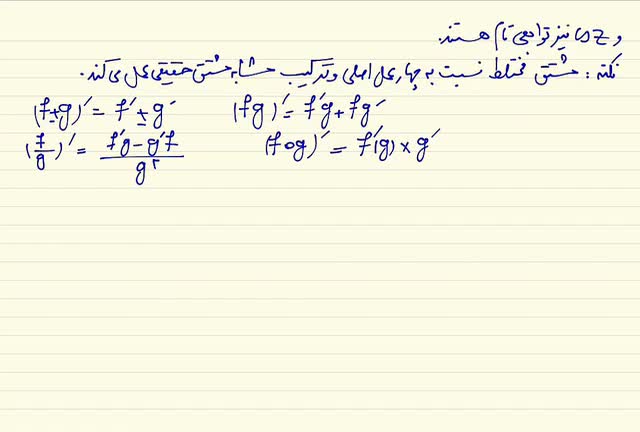 و cosz نیز توابعی تام هستند.
نکته: مشتق مختلط نسبت به چهار عمل اصلی و ترکیب مشابه مشتق حقیقی عمل می‌کند.
(f±g)′ = f′ ± g′   (fg)′ = f′g + fg′
(f/g)′ = (f′g − g′f)/g²   (fog)′ = f′(g) × g′